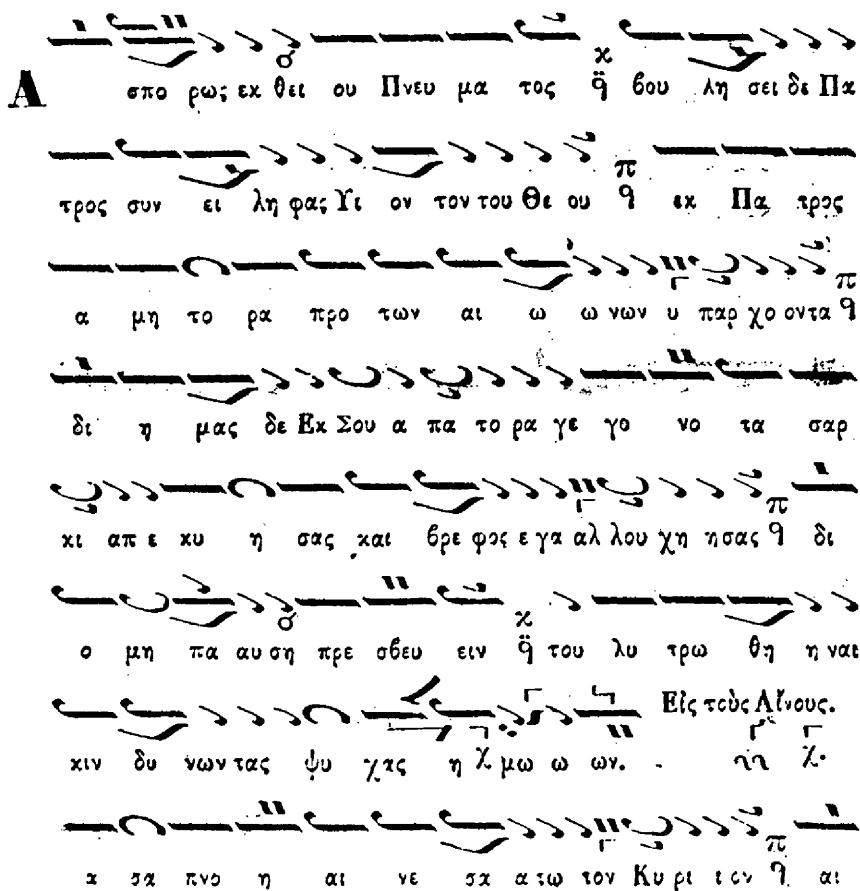 Α σπο ρως εκ θει ου Πνευ μα τος βου λη σει δε Πα
τρος συν ει λη φας Υι ον τον του Θε ου εκ Πα τρος
α μη το ρα προ των αι ω ω νων υ παρ χο οντα
δι η μας δε Εκ Σου α πα το ρα γε γο νο τα σαρ
κι απ ε κυ η σας και βρε φος ε γα αλ λου χη ησας δι
ο μη πα αυ ση πρε σβευ ειν του λυ τρω θη η ναι
κιν δυ νων τας ψυ χας η μω ω ων. Εἰς τοὺς Αἴνους.
α σα πνο η αι νε σα α τω τον Κυ ρι ι ον αι